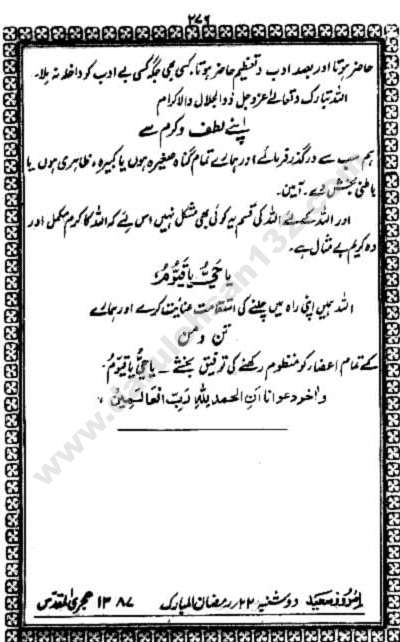 ۲۷۶
حاضر ہوتا اور بصد ادب و تعظیم حاضر ہوتا، کسی بھی جگہ کسی بے ادب کو داخلہ نہ ملا۔
اللہ تبارک و تعالےٰ عزوجل ذوالجلال والاکرام
اپنے لطف و کرم سے
ہم سب سے درگذر فرمائے اور ہمارے تمام گناہ صغیرہ ہوں یا کبیرہ، ظاہری ہوں یا
باطنی بخش دے۔ آمین۔
اور اللہ کے لئے اللہ کی قسم یہ کوئی بھی مشکل نہیں اس لئے کہ اللہ کا کرم مکمل اور
وہ کریم بے مثال ہے۔
یا حیُّ یا قیّومُ
اللہ ہمیں اپنی راہ میں چلنے کی استقامت عنایت کرے اور ہمارے
تن و من
کے تمام اعضار کو منظوم رکھنے کی توفیق بخشے ۔ یا حیُّ یا قیّومُ
واٰخر دعوانا اَنِ الحمد للہِ رَبِّ العالمین
www.darulehsan132.com
دوشنبہ ۲۲ رمضان المبارک ۱۳۸۷ ہجری المقدس